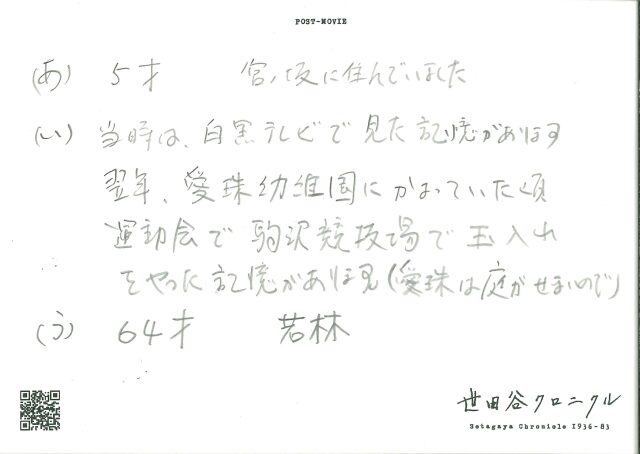 POST-MOVIE
(あ) 5才 宮ノ坂に住んでいました
(い) 当時は、白黒テレビで見た記憶があります
翌年、愛珠幼稚園にかよっていた頃
運動会で駒沢競技場で玉入れ
をやった記憶があります(愛珠は庭がせまいので)
(う) 64才 若林
世田谷クロニクル
Setagaya Chronicle 1936-83